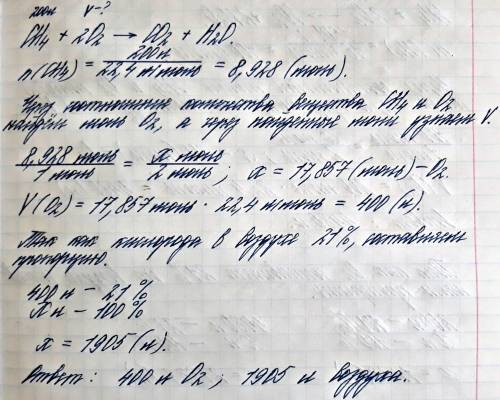 200л V-?
CH₄ + 2O₂ → CO₂ + H₂O.
n(CH₄) = 200л / 22,4 л/моль = 8,928 (моль).
Через соотношение количества вещества CH₄ и O₂
найдём моль O₂, а через найденные моли узнаем V.
8,928 моль / 1 моль = x моль / 2 моль ; x = 17,857 (моль) - O₂.
V(O₂) = 17,857 моль · 22,4 л/моль = 400 (л).
Так как кислорода в воздухе 21%, составляем
пропорцию.
400 л - 21 %
X л - 100 %
x = 1905 (л).
Ответ: 400 л O₂ ; 1905 л воздуха.